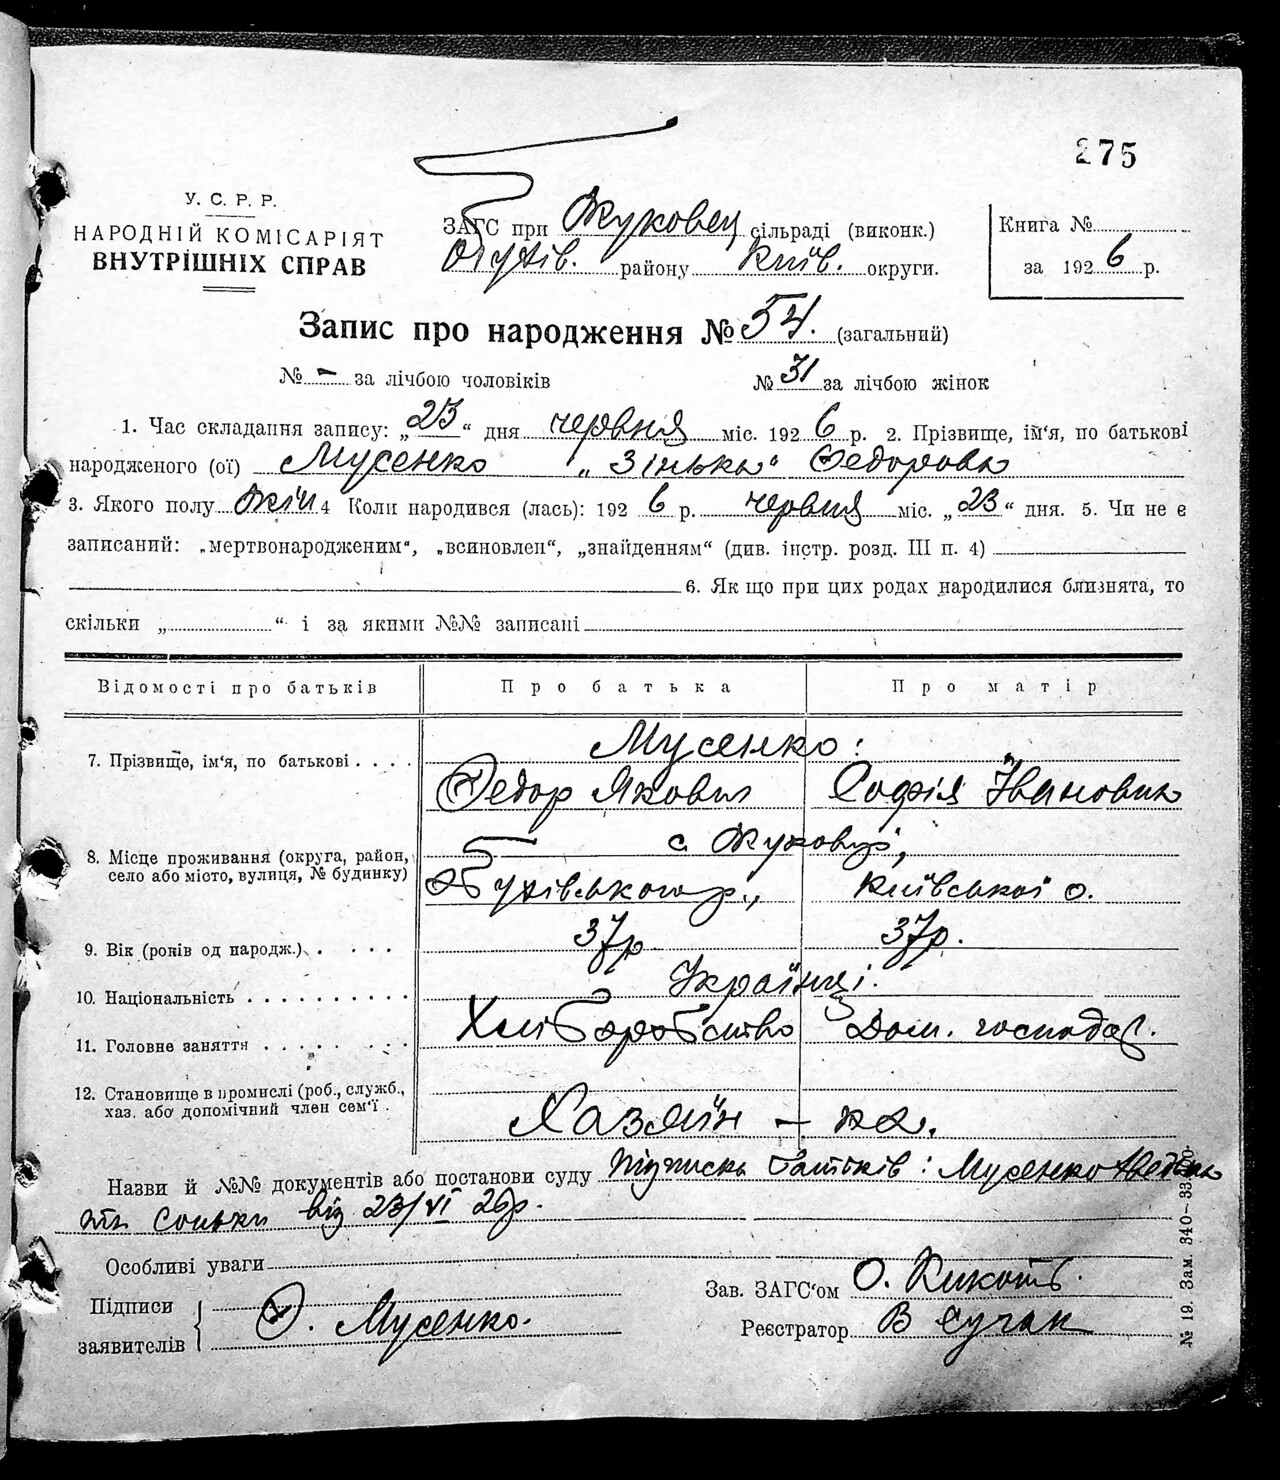 275
У. С. Р. Р.
НАРОДНІЙ КОМІСАРІЯТ
ВНУТРІШНІХ СПРАВ
ЗАГС при Жуковец сільраді (виконк.)
Обухів. району Київ. округи.
Книга №
за 1926 р.
Запис про народження № 54. (загальний)
№ - за лічбою чоловіків № 31 за лічбою жінок
1. Час складання запису: „23“ дня червня міс. 1926 р. 2. Прізвище, ім'я, по батькові
народженого (ої) Мусенко „Зінька“ Федоровна
3. Якого полу жін 4 Коли народився (лась): 1926 р. червня міс. „23“ дня. 5. Чи не є
записаний: „мертвонародженим“, „всиновлен“, „знайденням“ (див. інстр. розд. III п. 4)
6. Як що при цих родах народилися близнята, то
скільки „ “ і за якими №№ записані
Відомості про батьків Про батька Про матір
7. Прізвище, ім'я, по батькові . . . . Мусенко:
Федор Якович Софія Івановна
8. Місце проживання (округа, район, село або місто, вулиця, № будинку) с. Жуковці,
Обухівського р., Київської о.
9. Вік (років од народж.) . . . . 37р 37р.
10. Національність . . . . . . . . . . Українці.
11. Головне заняття . . . . . . . . Хліборобство Дом. господар.
12. Становище в промислі (роб., служб.,
хаз. або допомічний член сем'ї . Хазяїн - ка.
Назви й №№ документів або постанови суду Підписка батьків: Мусенко
та Соньки від 23/VI 26р.
Особливі уваги
Підписи
заявителів
Ф. Мусенко.
Зав. ЗАГС'ом О. Кикоть.
Реєстратор В Сучак
№ 19. Зам. 340—33.